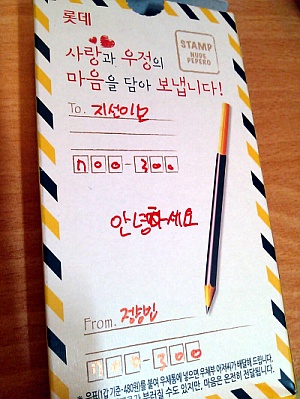 롯데
사랑과 우정의
마음을 담아 보냅니다!
STAMP
NUDE
PEPERO
To. 지선이모
700-300
안녕하세요
From.
-300
우표(1갑 기준·480원)를 붙여 우체통에 넣으면 우체부 아저씨가 배달해 드립니다.
부러질 수도 있지만, 마음은 온전히 전달됩니다.